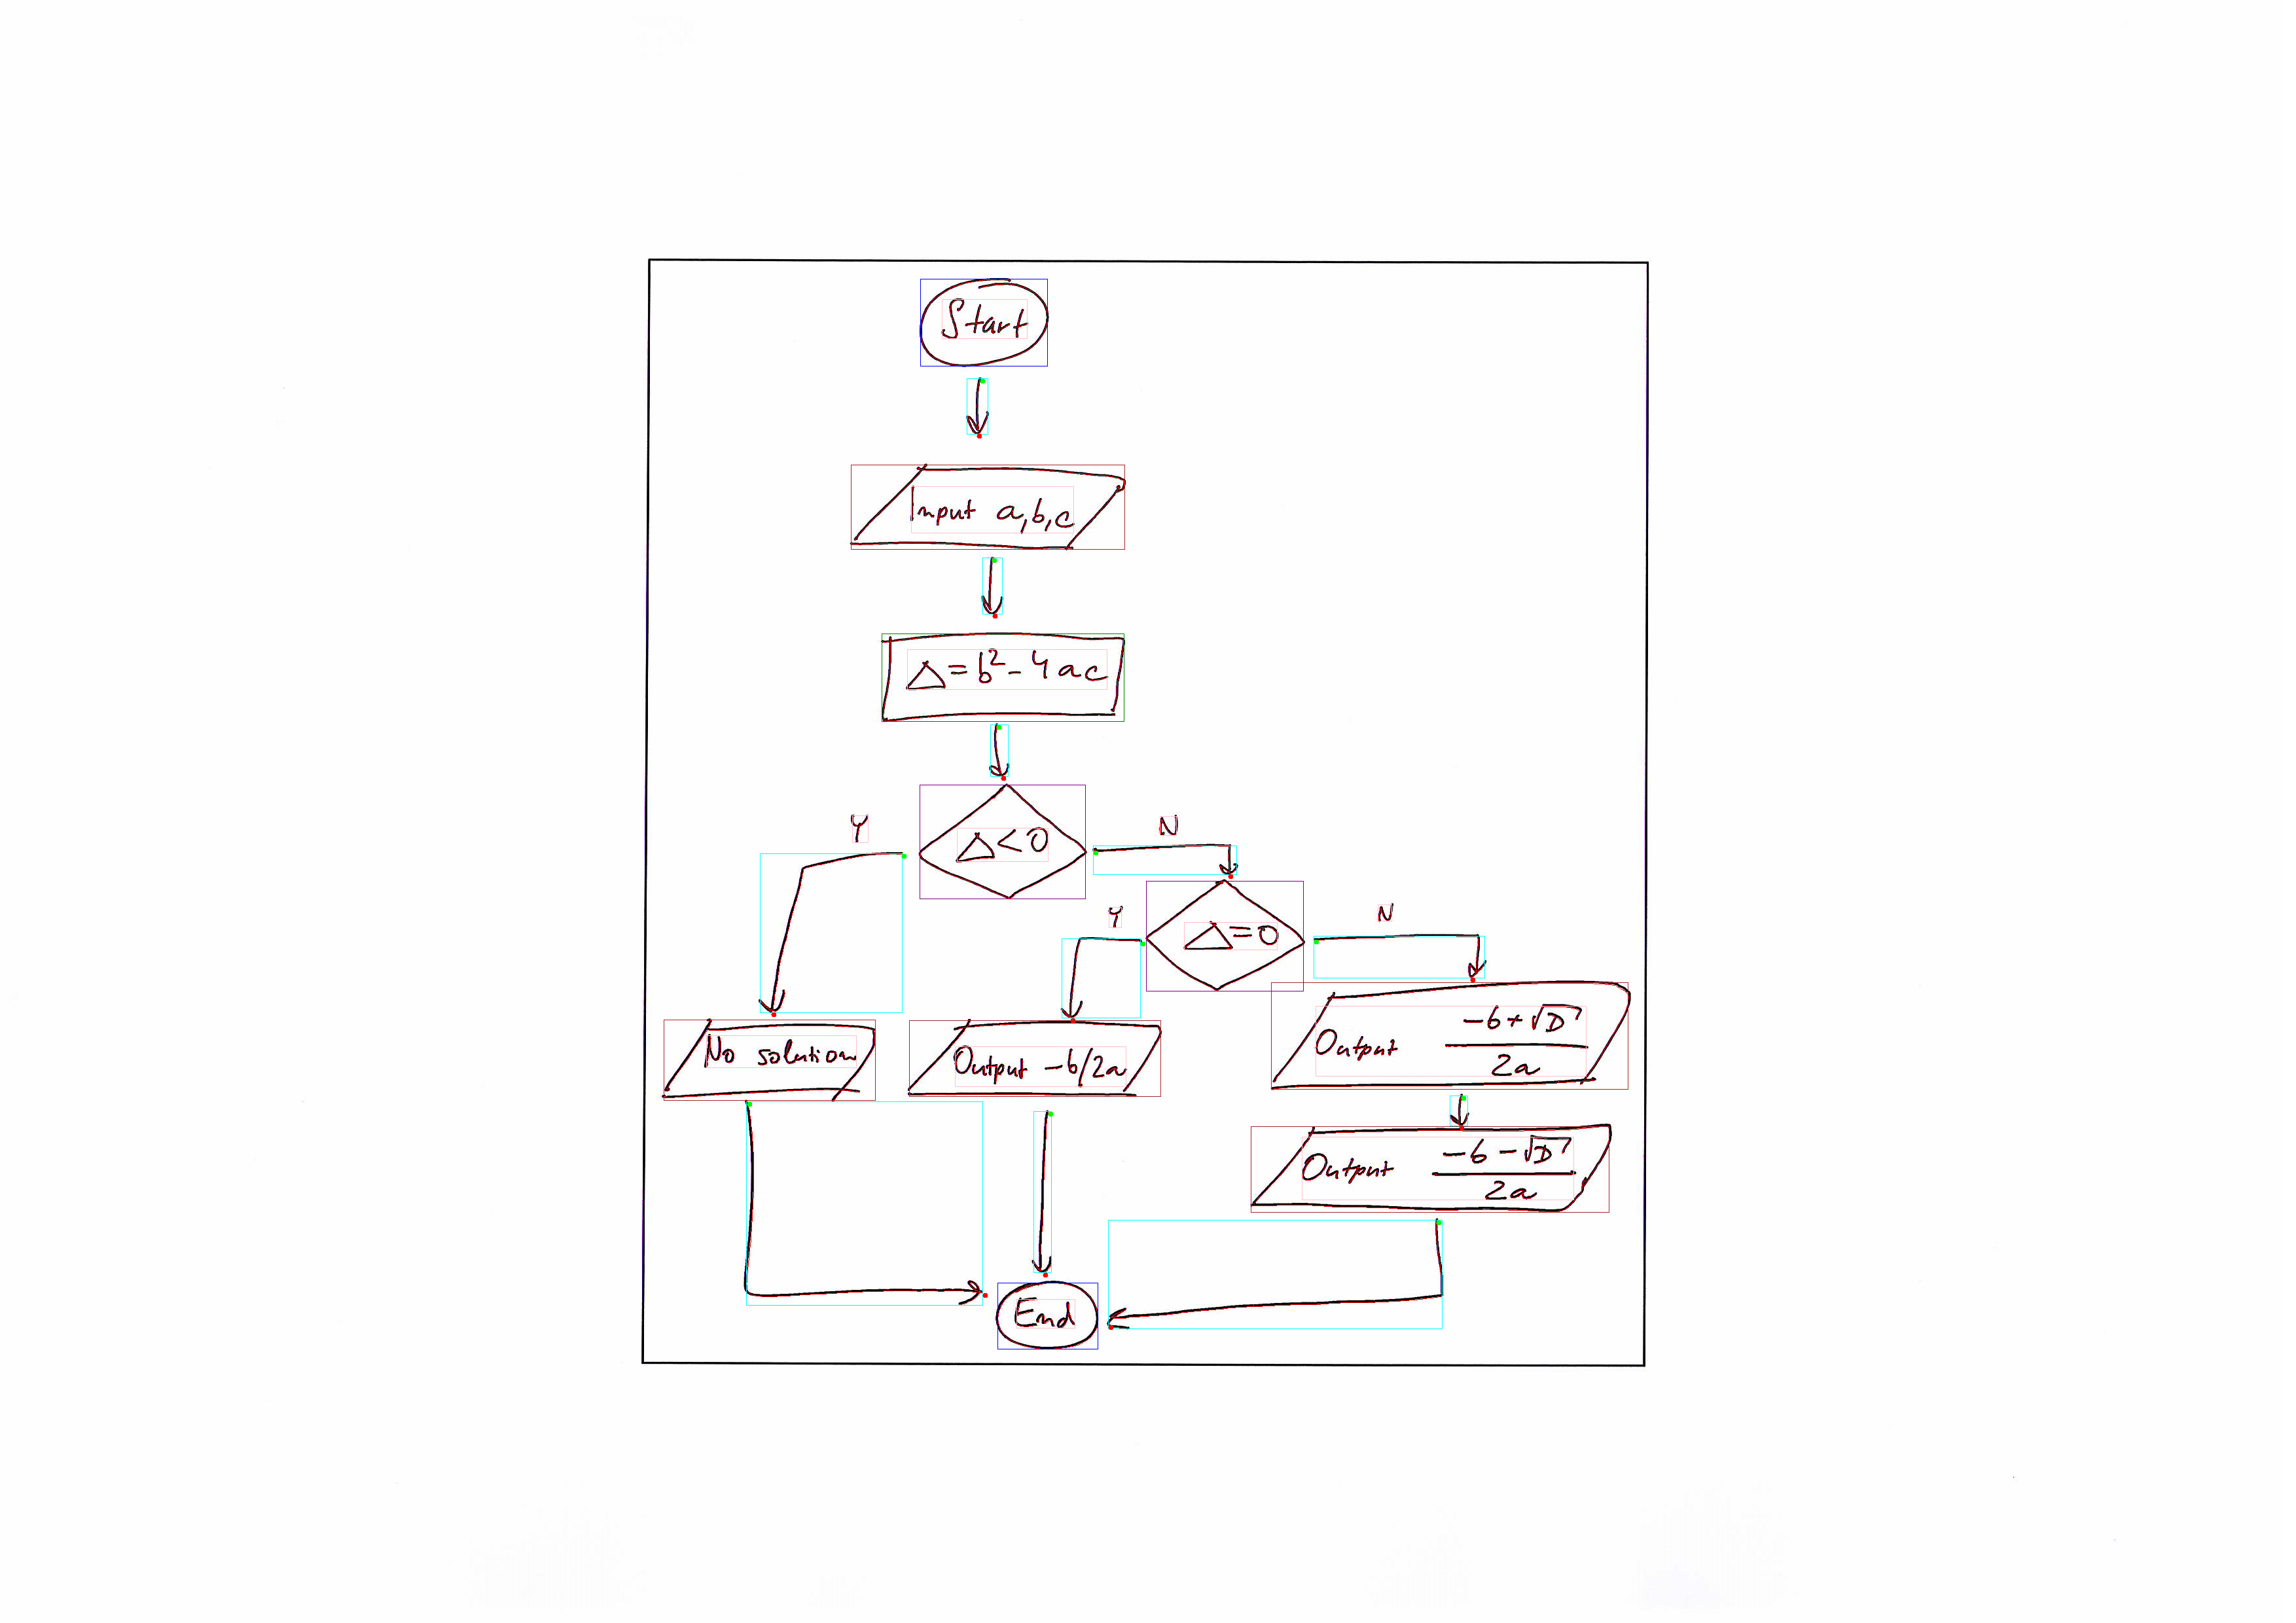 Start
Input a,b,c
△=b²-4ac
△<0
Y
N
△=0
Y
N
No solution
Output -b/2a
Output (-b+√D)/2a
Output (-b-√D)/2a
End